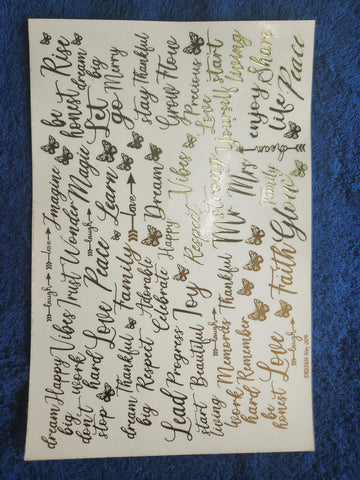 dream
big
Happy
Vibes
laugh
love
Imagine
be
honest
Rise
don't
stop
work
hard
Love
Trust
Wonder
Magic
Let
go
dream
big
Merry
laugh
Peace
Learn
love
stay
Thankful
dream
big
Thankful
Family
Respect
Adorable
Celebrate
Dream
Happy
Vibes
Grow
Flow
Precious
Love
start
living
Lead
Progress
Joy
Respect
Strong
Yourself
start
living
Beautiful
Memories
Thankful
Mr
Mrs
enjoy
Share
work
hard
Remember
dream
life
Peace
be
honest
Love
laugh
Faith
Glow
Family
DESIGN No.